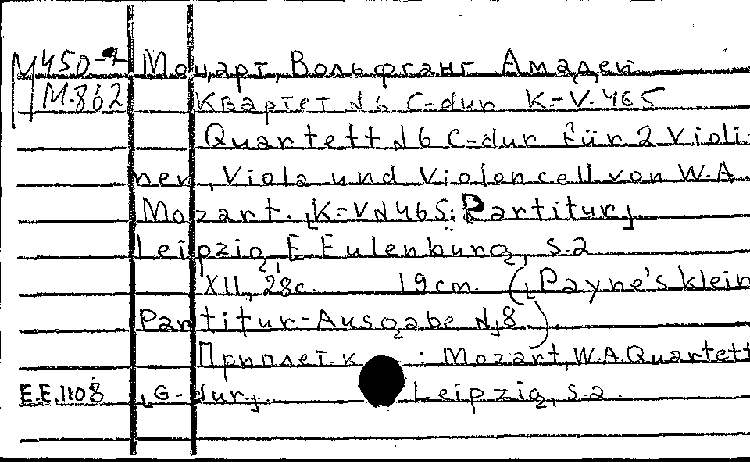 М450-2 Моцарт, Вольфганг Амадей
М.862 Квартет №6 C-dur K-V.465
Quartett №6 C-dur für 2 Violi-
nen, Viola und Violoncell von W.A.
Mozart. [K-V№465. Partitur]
Leipzig, E. Eulenburg, s.a.
XII, 28с. 19 cm. ([Payne's klein
Partitur-Ausgabe №8)
Приплет. к : Mozart, W.A. Quartett
E.E.1108 [G-dur]. Leipzig, s.a.